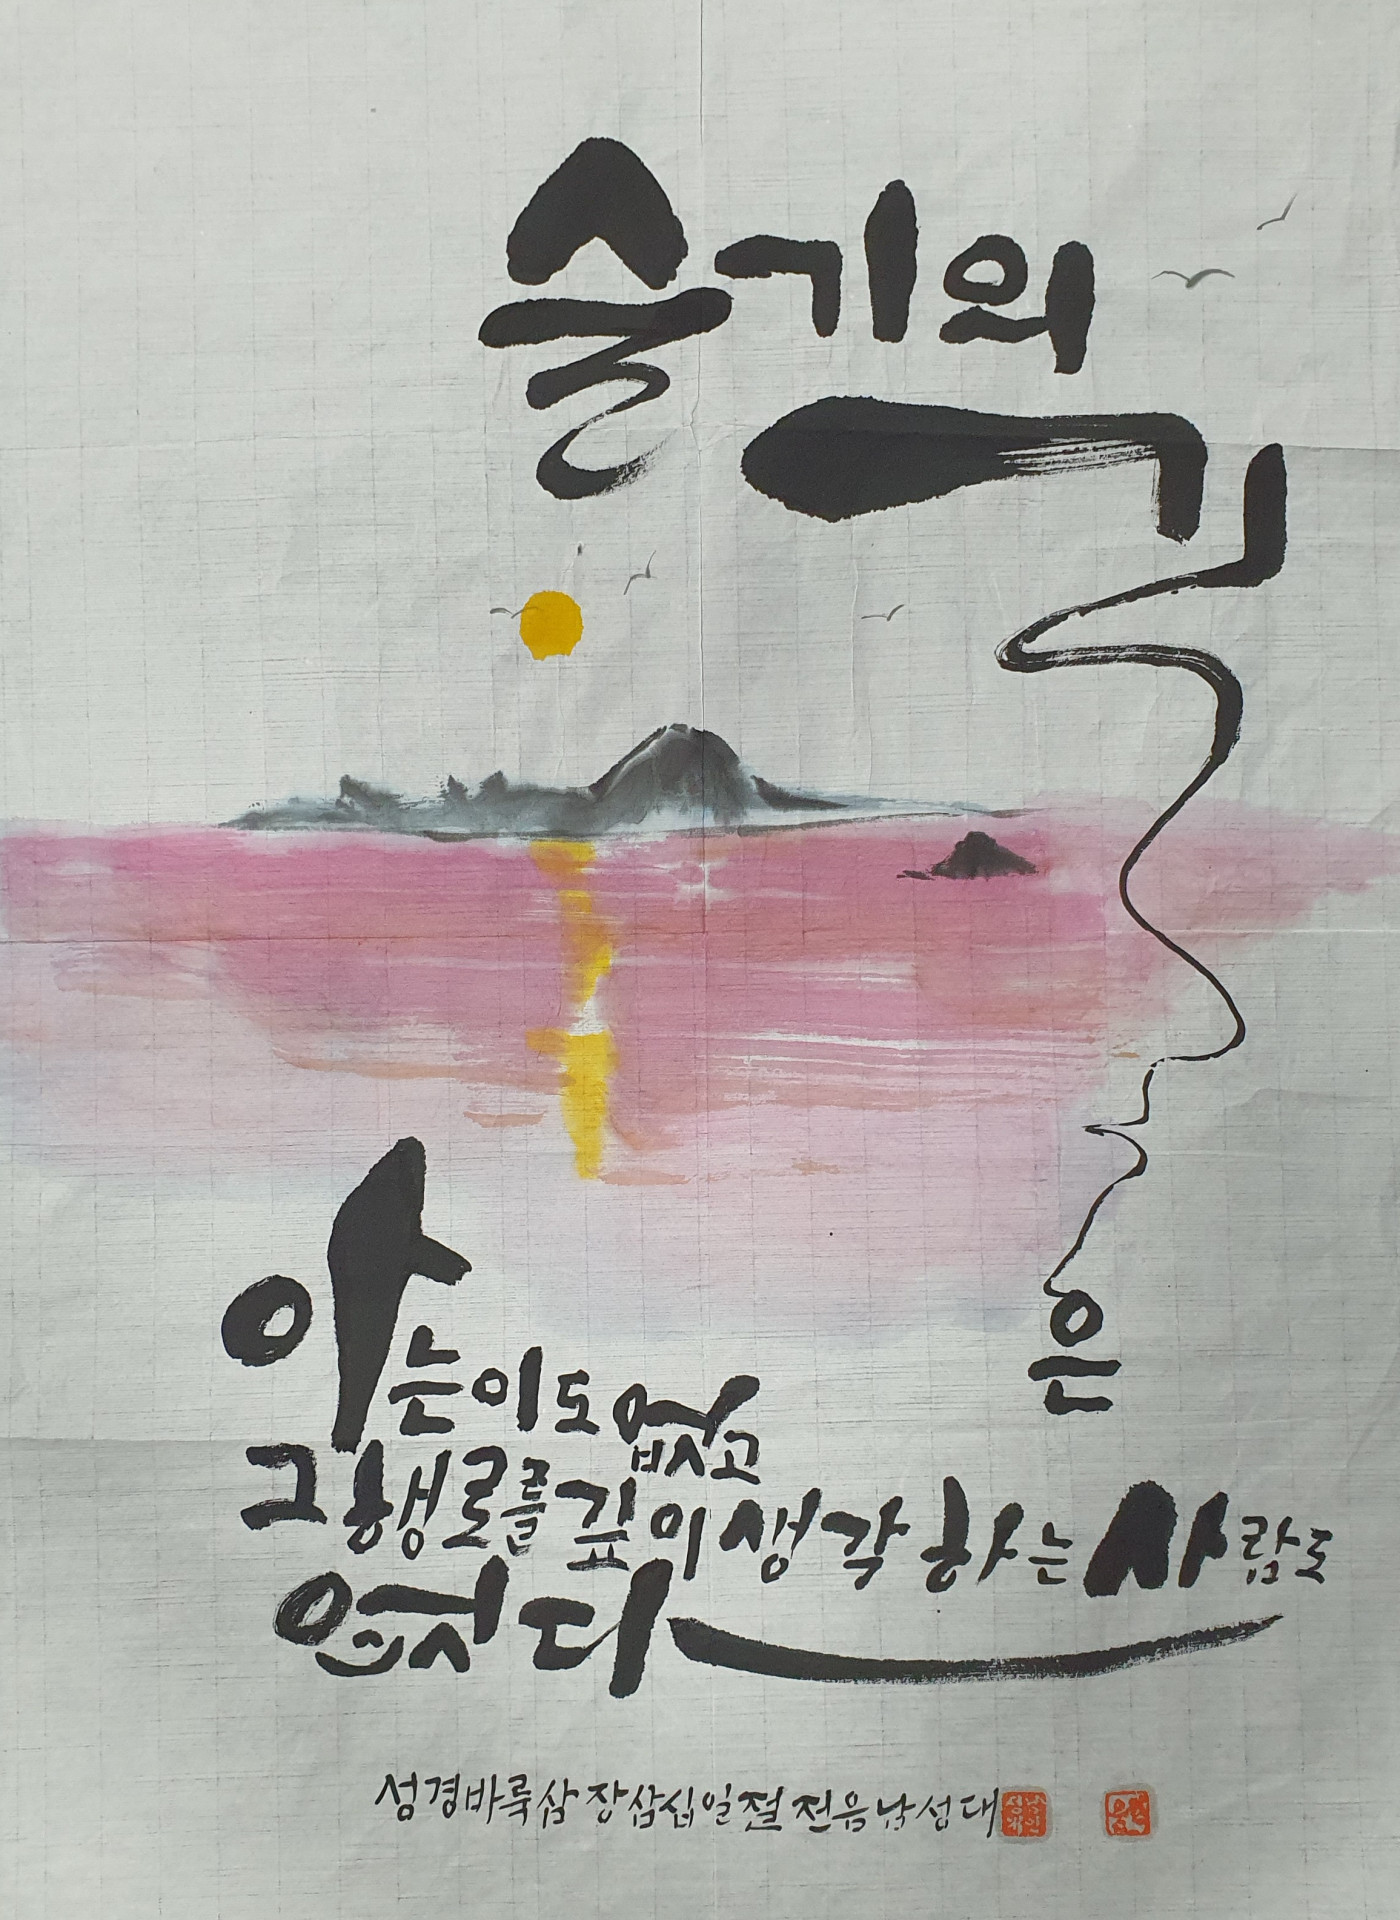 슬기의
길
은
아는이도 없고
그 행로를 깊이 생각하는 사람도
없다
성경바룩삼장삼십일절 전음남성대